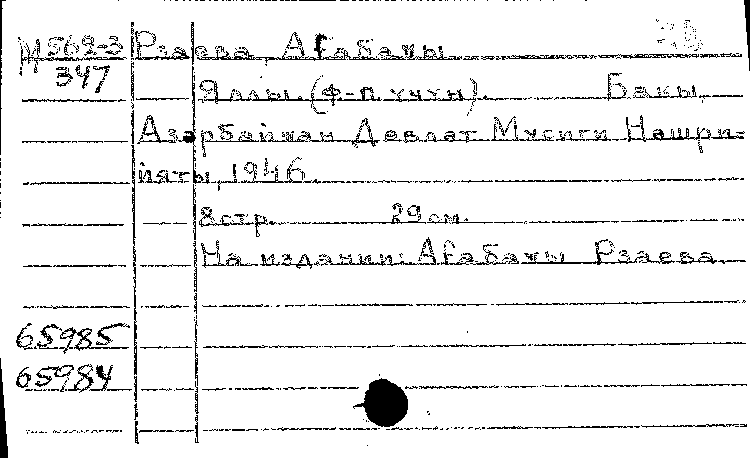 М 562-3 Рзаева, Ағабаҹы
347
Яллы. (ф-п. үчүн). Бакы,
Азәрбайҹан Дөвләт Мусиги Нәшри-
йяты, 1946.
8 стр. 29 см.
На издании: Ағабаҹы Рзаева.
65985
65984